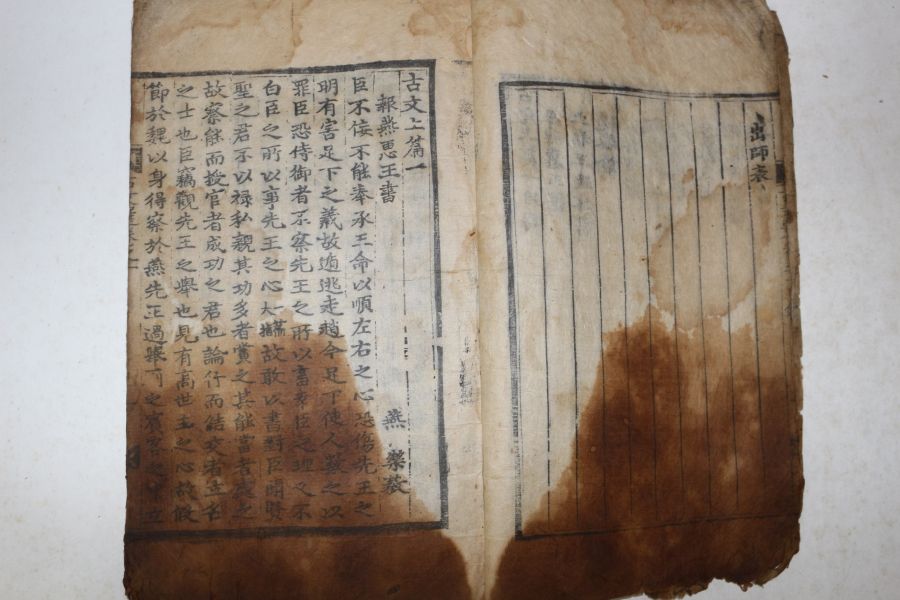 出師表
古文上篇一
報燕恵王書 燕 樂毅
臣不佞不能奉承王命以順左右之心恐傷先王之
明有害足下之義故遁逃走趙今足下使人數之以
罪臣恐侍御者不察先王之所以畜幸臣之理又不
白臣之所以事先王之心故敢以書對臣聞賢
聖之君不以禄私親其功多者賞之其能當者處之
故察能而授官者成功之君也論行而結交者立名
之士也臣竊觀先王之擧也見有高世主之心故假
節於魏以身得察於燕先王過擧之賓客之中立